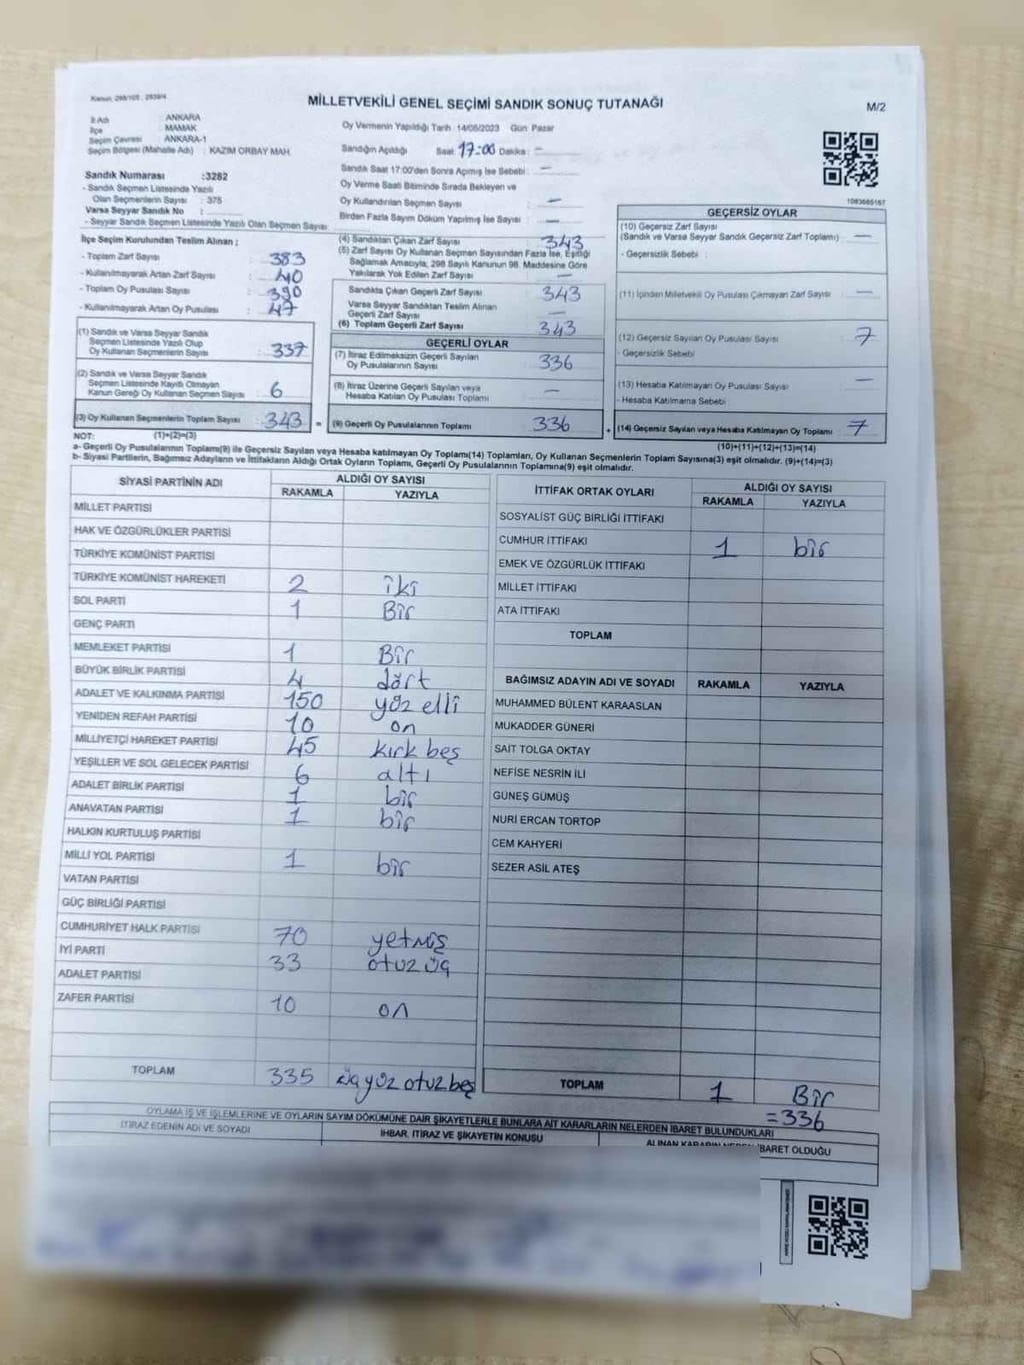 Kanun: 298/105 , 2839/4
MİLLETVEKİLİ GENEL SEÇİMİ SANDIK SONUÇ TUTANAĞI
M/2
İl Adı : ANKARA
İlçe : MAMAK
Seçim Çevresi : ANKARA-1
Seçim Bölgesi (Mahalle Adı) : KAZIM ORBAY MAH.
Sandık Numarası :3282
- Sandık Seçmen Listesinde Yazılı
Olan Seçmenlerin Sayısı : 375
Varsa Seyyar Sandık No :
- Seyyar Sandık Seçmen Listesinde Yazılı Olan Seçmen Sayısı:
Oy Vermenin Yapıldığı Tarih 14/05/2023 Gün: Pazar
Sandığın Açıldığı Saat 17:00 Dakika : —
Sandık Saat 17:00'den Sonra Açılmış İse Sebebi : —
Oy Verme Saati Bitiminde Sırada Bekleyen ve
Oy Kullandırılan Seçmen Sayısı : —
Birden Fazla Sayım Döküm Yapılmış İse Sayısı : —
1083665167
İlçe Seçim Kurulundan Teslim Alınan ;
- Toplam Zarf Sayısı : 383
- Kullanılmayarak Artan Zarf Sayısı : 40
- Toplam Oy Pusulası Sayısı : 390
- Kullanılmayarak Artan Oy Pusulası : 47
(1) Sandık ve Varsa Seyyar Sandık
Seçmen Listesinde Yazılı Olup
Oy Kullanan Seçmenlerin Sayısı : 337
(2) Sandık ve Varsa Seyyar Sandık
Seçmen Listesinde Kayıtlı Olmayan
Kanun Gereği Oy Kullanan Seçmen Sayısı : 6
(3) Oy Kullanan Seçmenlerin Toplam Sayısı : 343 =
(4) Sandıktan Çıkan Zarf Sayısı : 343
(5) Zarf Sayısı Oy Kullanan Seçmen Sayısından Fazla İse, Eşitliği
Sağlamak Amacıyla, 298 Sayılı Kanunun 98. Maddesine Göre
Yakılarak Yok Edilen Zarf Sayısı : —
Sandıkta Çıkan Geçerli Zarf Sayısı : 343
Varsa Seyyar Sandıktan Teslim Alınan
Geçerli Zarf Sayısı : —
(6) Toplam Geçerli Zarf Sayısı : 343
GEÇERLİ OYLAR
(7) İtiraz Edilmeksizin Geçerli Sayılan
Oy Pusulalarının Sayısı : 336
(8) İtiraz Üzerine Geçerli Sayılan veya
Hesaba Katılan Oy Pusulası Toplamı : —
(9) Geçerli Oy Pusulalarının Toplamı : 336 +
GEÇERSİZ OYLAR
(10) Geçersiz Zarf Sayısı
(Sandık ve Varsa Seyyar Sandık Geçersiz Zarf Toplamı) : —
- Geçersizlik Sebebi :
(11) İçinden Milletvekili Oy Pusulası Çıkmayan Zarf Sayısı : —
(12) Geçersiz Sayılan Oy Pusulası Sayısı : 7
- Geçersizlik Sebebi :
(13) Hesaba Katılmayan Oy Pusulası Sayısı : —
- Hesaba Katılmama Sebebi :
(14) Geçersiz Sayılan veya Hesaba Katılmayan Oy Toplamı : 7
NOT: (1)+(2)=(3)
(10)+(11)+(12)+(13)=(14)
a- Geçerli Oy Pusulasının Toplamı(9) ile Geçersiz Sayılan veya Hesaba katılmayan Oy Toplamı(14) Toplamları, Oy Kullanan Seçmenlerin Toplam Sayısına(3) eşit olmalıdır. (9)+(14)=(3)
b- Siyasi Partilerin, Bağımsız Adayların ve İttifakların Aldığı Ortak Oyların Toplamı, Geçerli Oy Pusulalarının Toplamına(9) eşit olmalıdır.
SİYASİ PARTİNİN ADI ALDIĞI OY SAYISI
RAKAMLA YAZIYLA
MİLLET PARTİSİ
HAK VE ÖZGÜRLÜKLER PARTİSİ
TÜRKİYE KOMÜNİST PARTİSİ
TÜRKİYE KOMÜNİST HAREKETİ 2 iki
SOL PARTİ 1 Bir
GENÇ PARTİ
MEMLEKET PARTİSİ 1 Bir
BÜYÜK BİRLİK PARTİSİ 4 dört
ADALET VE KALKINMA PARTİSİ 150 yüz elli
YENİDEN REFAH PARTİSİ 10 on
MİLLİYETÇİ HAREKET PARTİSİ 45 kırk beş
YEŞİLLER VE SOL GELECEK PARTİSİ 6 altı
ADALET BİRLİK PARTİSİ 1 bir
ANAVATAN PARTİSİ 1 bir
HALKIN KURTULUŞ PARTİSİ
MİLLİ YOL PARTİSİ 1 bir
VATAN PARTİSİ
GÜÇ BİRLİĞİ PARTİSİ
CUMHURİYET HALK PARTİSİ 70 yetmiş
İYİ PARTİ 33 otuz üç
ADALET PARTİSİ
ZAFER PARTİSİ 10 on
TOPLAM 335 üçyüz otuz beş
İTTİFAK ORTAK OYLARI ALDIĞI OY SAYISI
RAKAMLA YAZIYLA
SOSYALİST GÜÇ BİRLİĞİ İTTİFAKI
CUMHUR İTTİFAKI 1 bir
EMEK VE ÖZGÜRLÜK İTTİFAKI
MİLLET İTTİFAKI
ATA İTTİFAKI
TOPLAM
BAĞIMSIZ ADAYIN ADI VE SOYADI RAKAMLA YAZIYLA
MUHAMMED BÜLENT KARAASLAN
MUKADDER GÜNERİ
SAİT TOLGA OKTAY
NEFİSE NESRİN İLİ
GÜNEŞ GÜMÜŞ
NURİ ERCAN TORTOP
CEM KAHYERİ
SEZER ASİL ATEŞ
TOPLAM 1 Bir
=336
OYLAMA İŞ VE İŞLEMLERİNE VE OYLARIN SAYIM DÖKÜMÜNE DAİR ŞİKAYETLERLE BUNLARA AİT KARARLARIN NELERDEN İBARET BULUNDUKLARI
İTİRAZ EDENİN ADI VE SOYADI İHBAR, İTİRAZ VE ŞİKAYETİN KONUSU ALINAN KARARIN NEDEN İBARET OLDUĞU